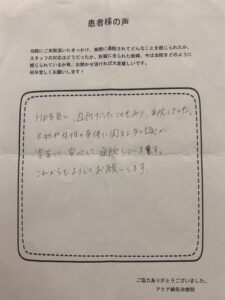 患者様の声
当院にご来院頂いたきっかけ、実際に通院されてどんなことを感じられたか、
スタッフの対応はどうだったか、診療に見られた経緯、今は当院をどのように
感じられているか等、お聞かせ頂ければ大変嬉しいです。
何卒宜しくお願いします！
HPを見て、近所だったこともあり、来院しました。
女性の身体に関する知識が
安心して通院しています。
これからもよろしくお願いします。
ご協力ありがとうございました。
アクア鍼灸治療院